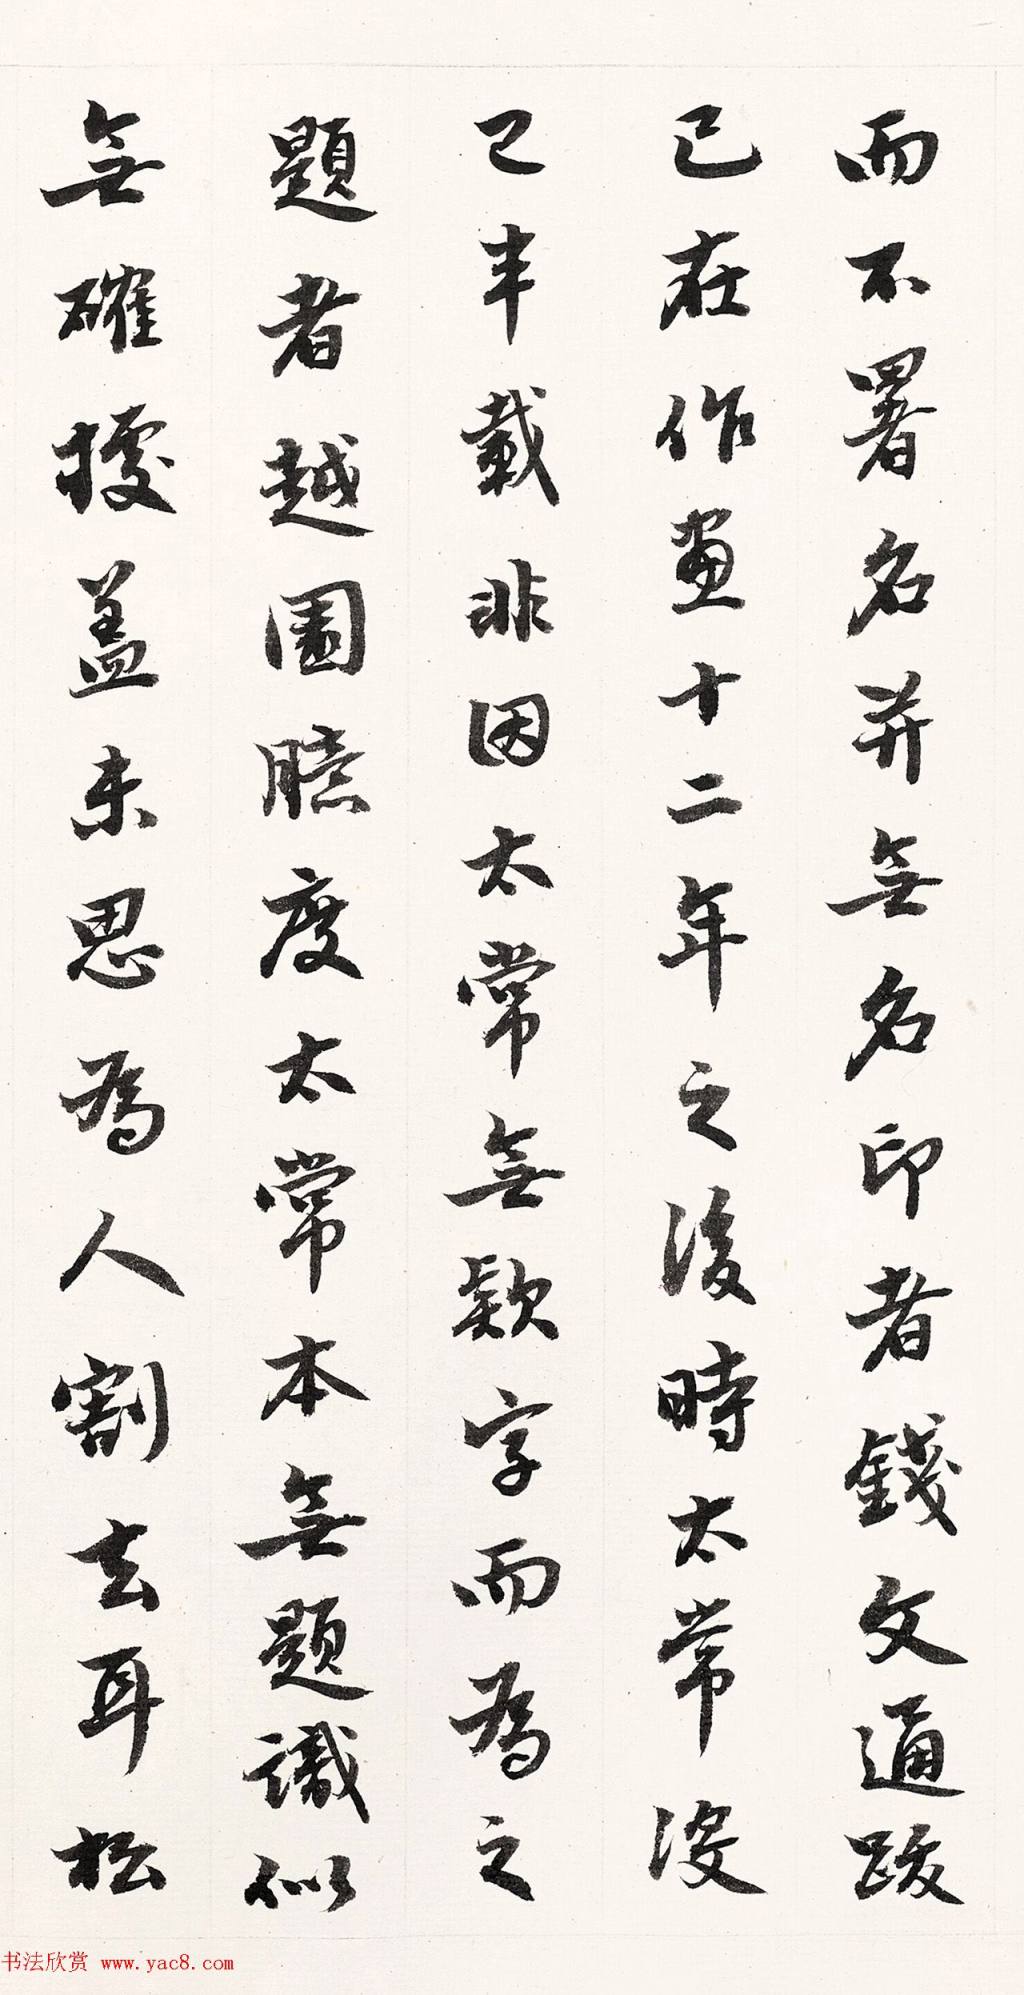 而不署名并無名印者錢文通跋
已在作畫十二年之後時太常沒
已半載非因太常無款字而為之
題者越園臆度太常本無題識似
無確據蓋未思為人割去耳松
书法欣赏 www.yac8.com